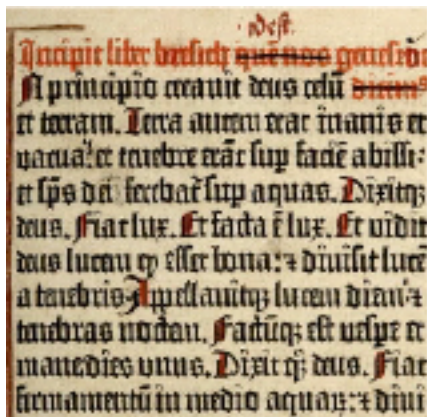 id est.
Incipit liber bresich quē nos
A principio creauit deus celū dicim⁹
et terram. Terra autem erat inanis et
uacua: et tenebre erāt sup faciē abissi:
et sp̄s dei ferebat̄ sup aquas. Dixitqꝫ
deus. Fiat lux. Et facta ē lux. Et uidit
deus lucem ꝙ esset bona: ⁊ diuisit lucē
a tenebris. Appellauitqꝫ lucem diem ⁊
tenebras noctem. Factūqꝫ est uespe et
mane dies unus. Dixit qꝫ deus. Fiat
firmamentū in medio aquaꝝ: ⁊ diui